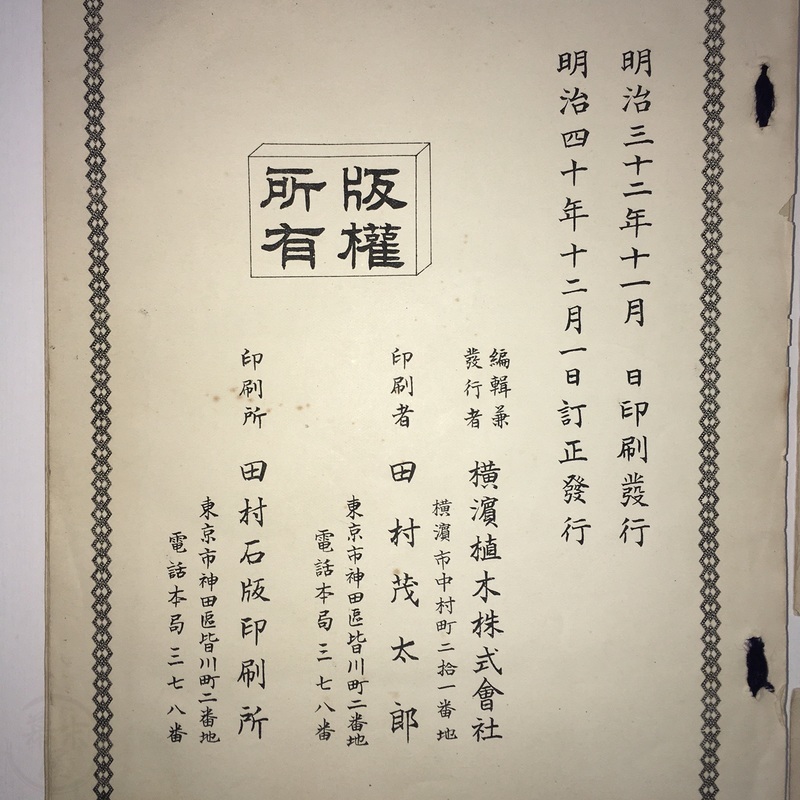 明治三十二年十一月　日印刷發行
明治四十年十二月一日訂正發行
版權
所有
編輯兼
發行者
橫濱植木株式會社
橫濱市中村町二拾一番地
印刷者
田村茂太郎
東京市神田區皆川町二番地
電話本局三七八番
印刷所
田村石版印刷所
東京市神田區皆川町二番地
電話本局三七八番